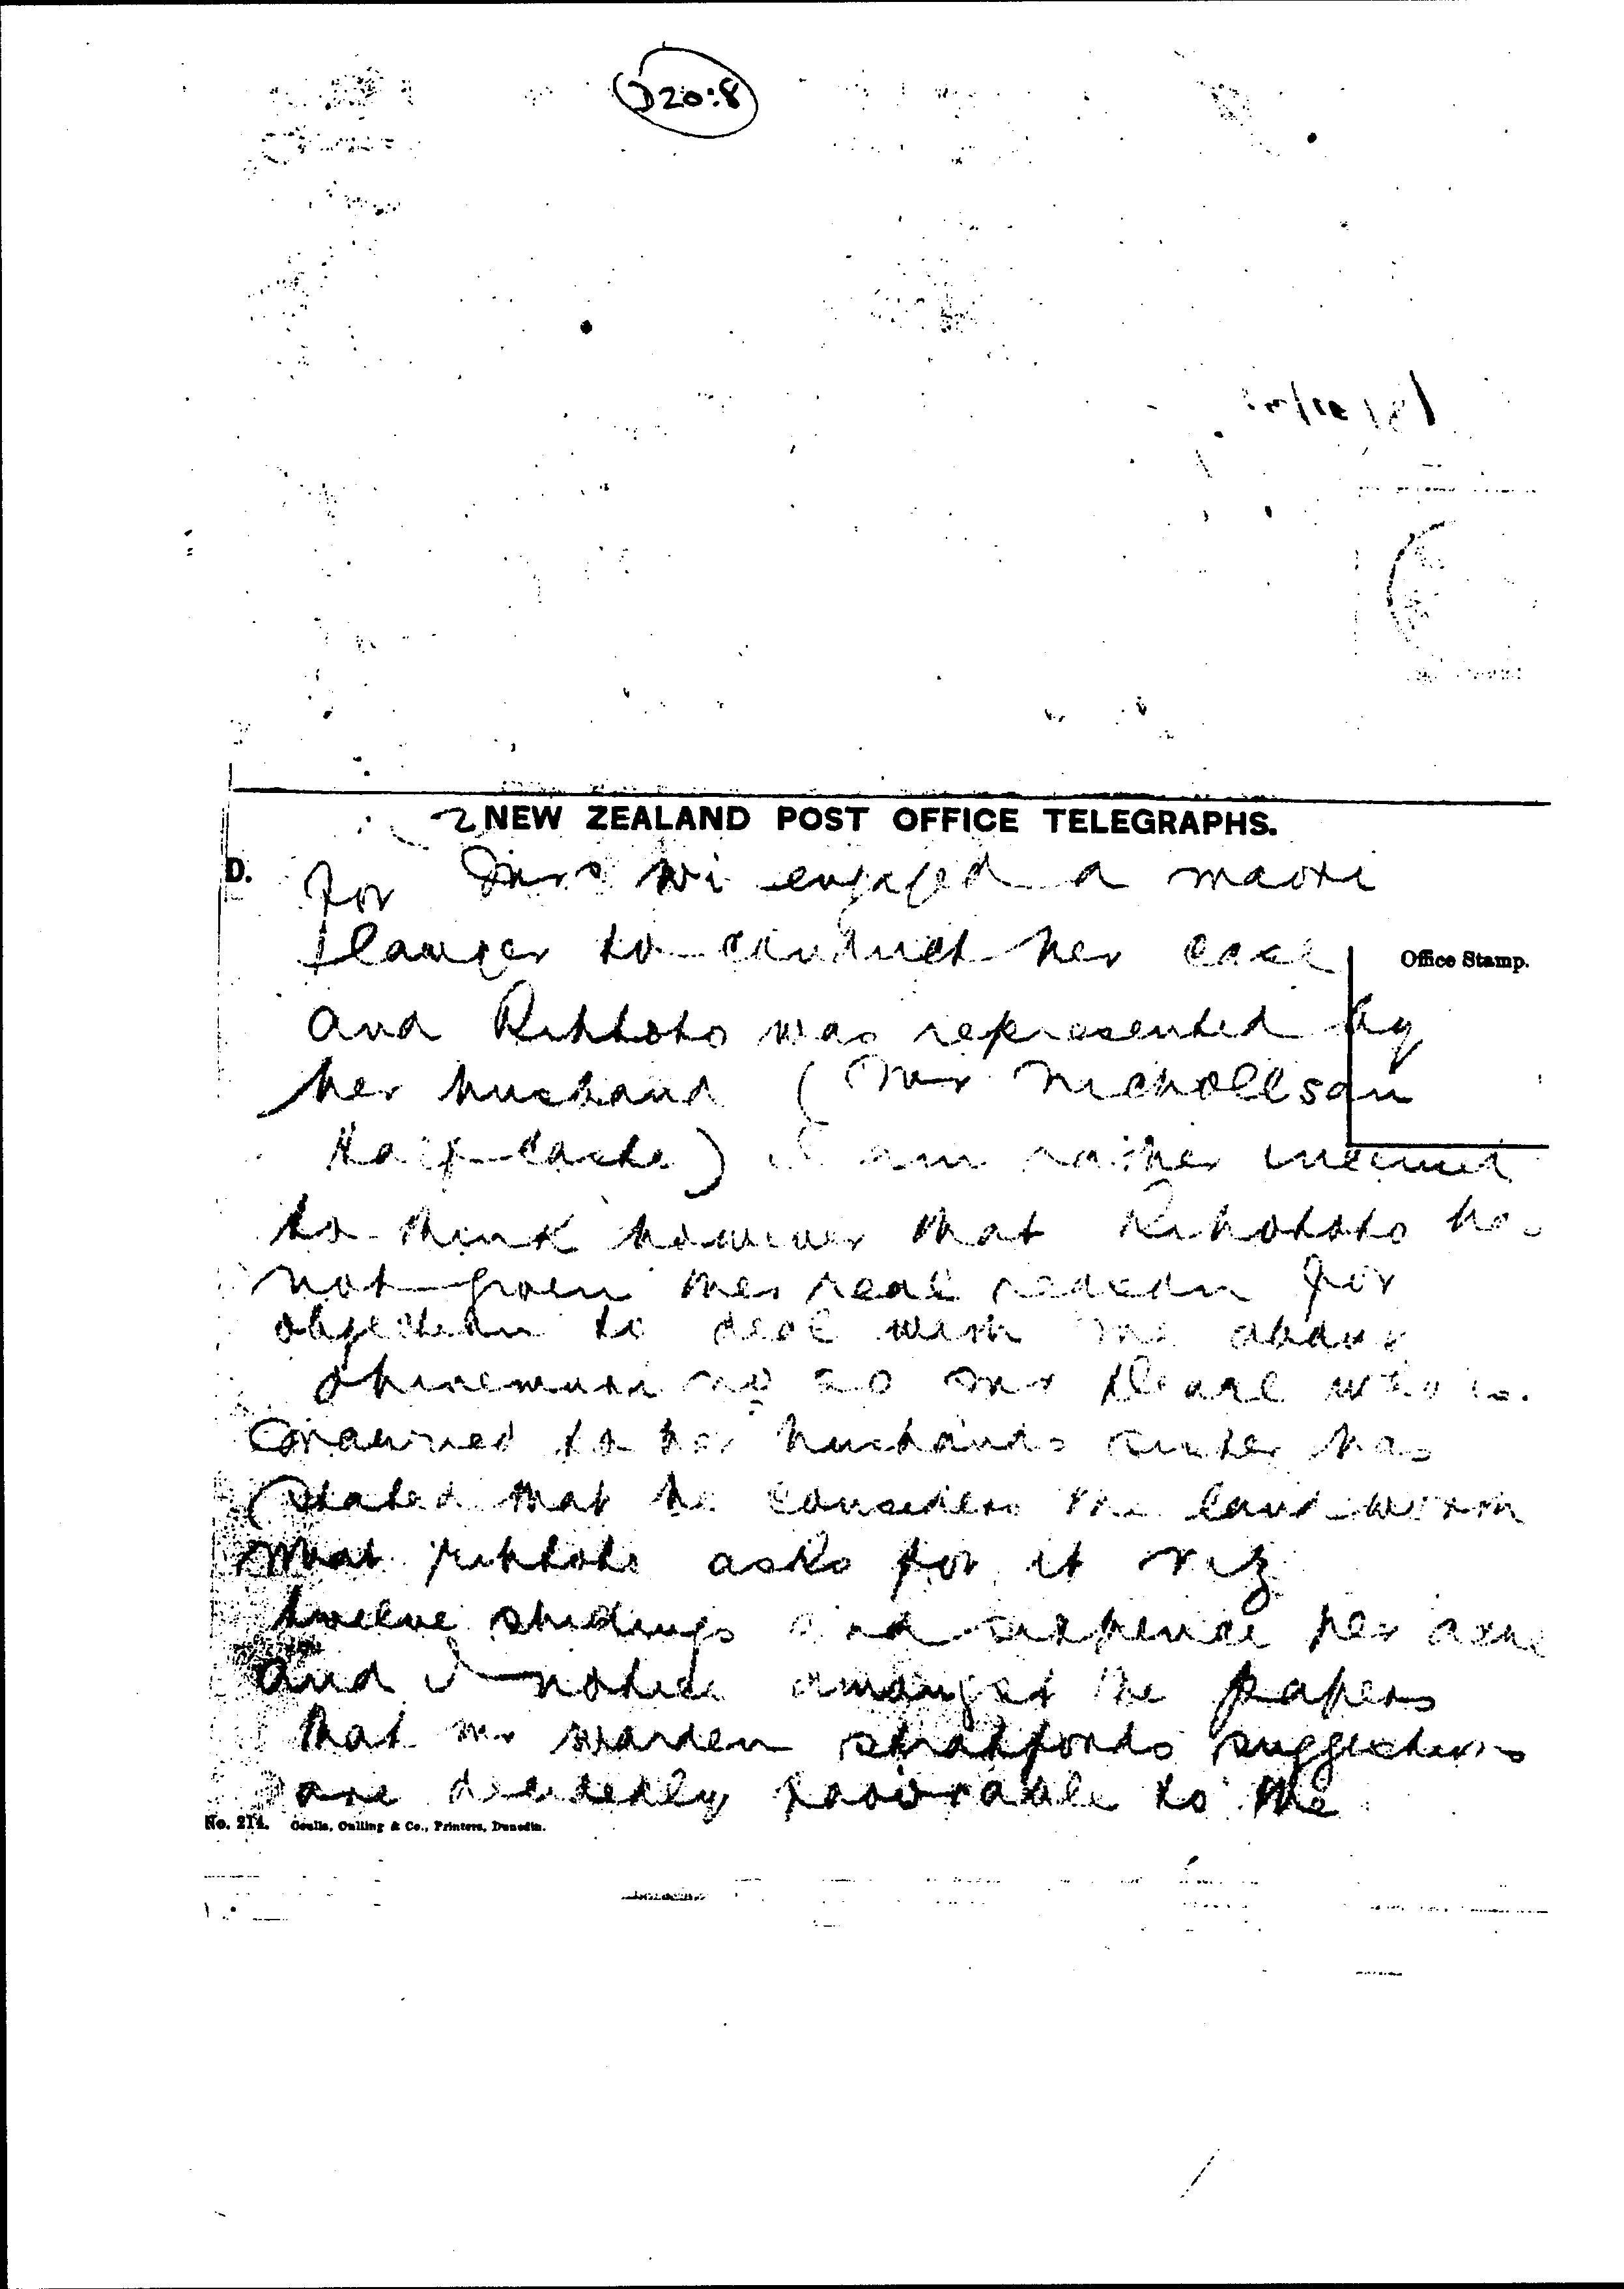 D20:8
2 NEW ZEALAND POST OFFICE TELEGRAPHS.
D.
for Mrs Wi engaged a maori
lawyer to conduct her case
Office Stamp.
and Rihitoto was represented by
her husband (Mr Nichollson
Half-caste) I am rather inclined
to think however that Rihitoto
not given the real reason for
objection to deal with the above
Ohinemuri no 20 Mr who is
married to her husbands sister has
stated that he considers the land worth
what rihitoto asks for it viz
twelve shillings and sixpence per acre
and I notice amongst the papers
that mr warden stratfords suggestions
are decidedly favorable to the
No. 214. Coulls, Culling & Co., Printers, Dunedin.